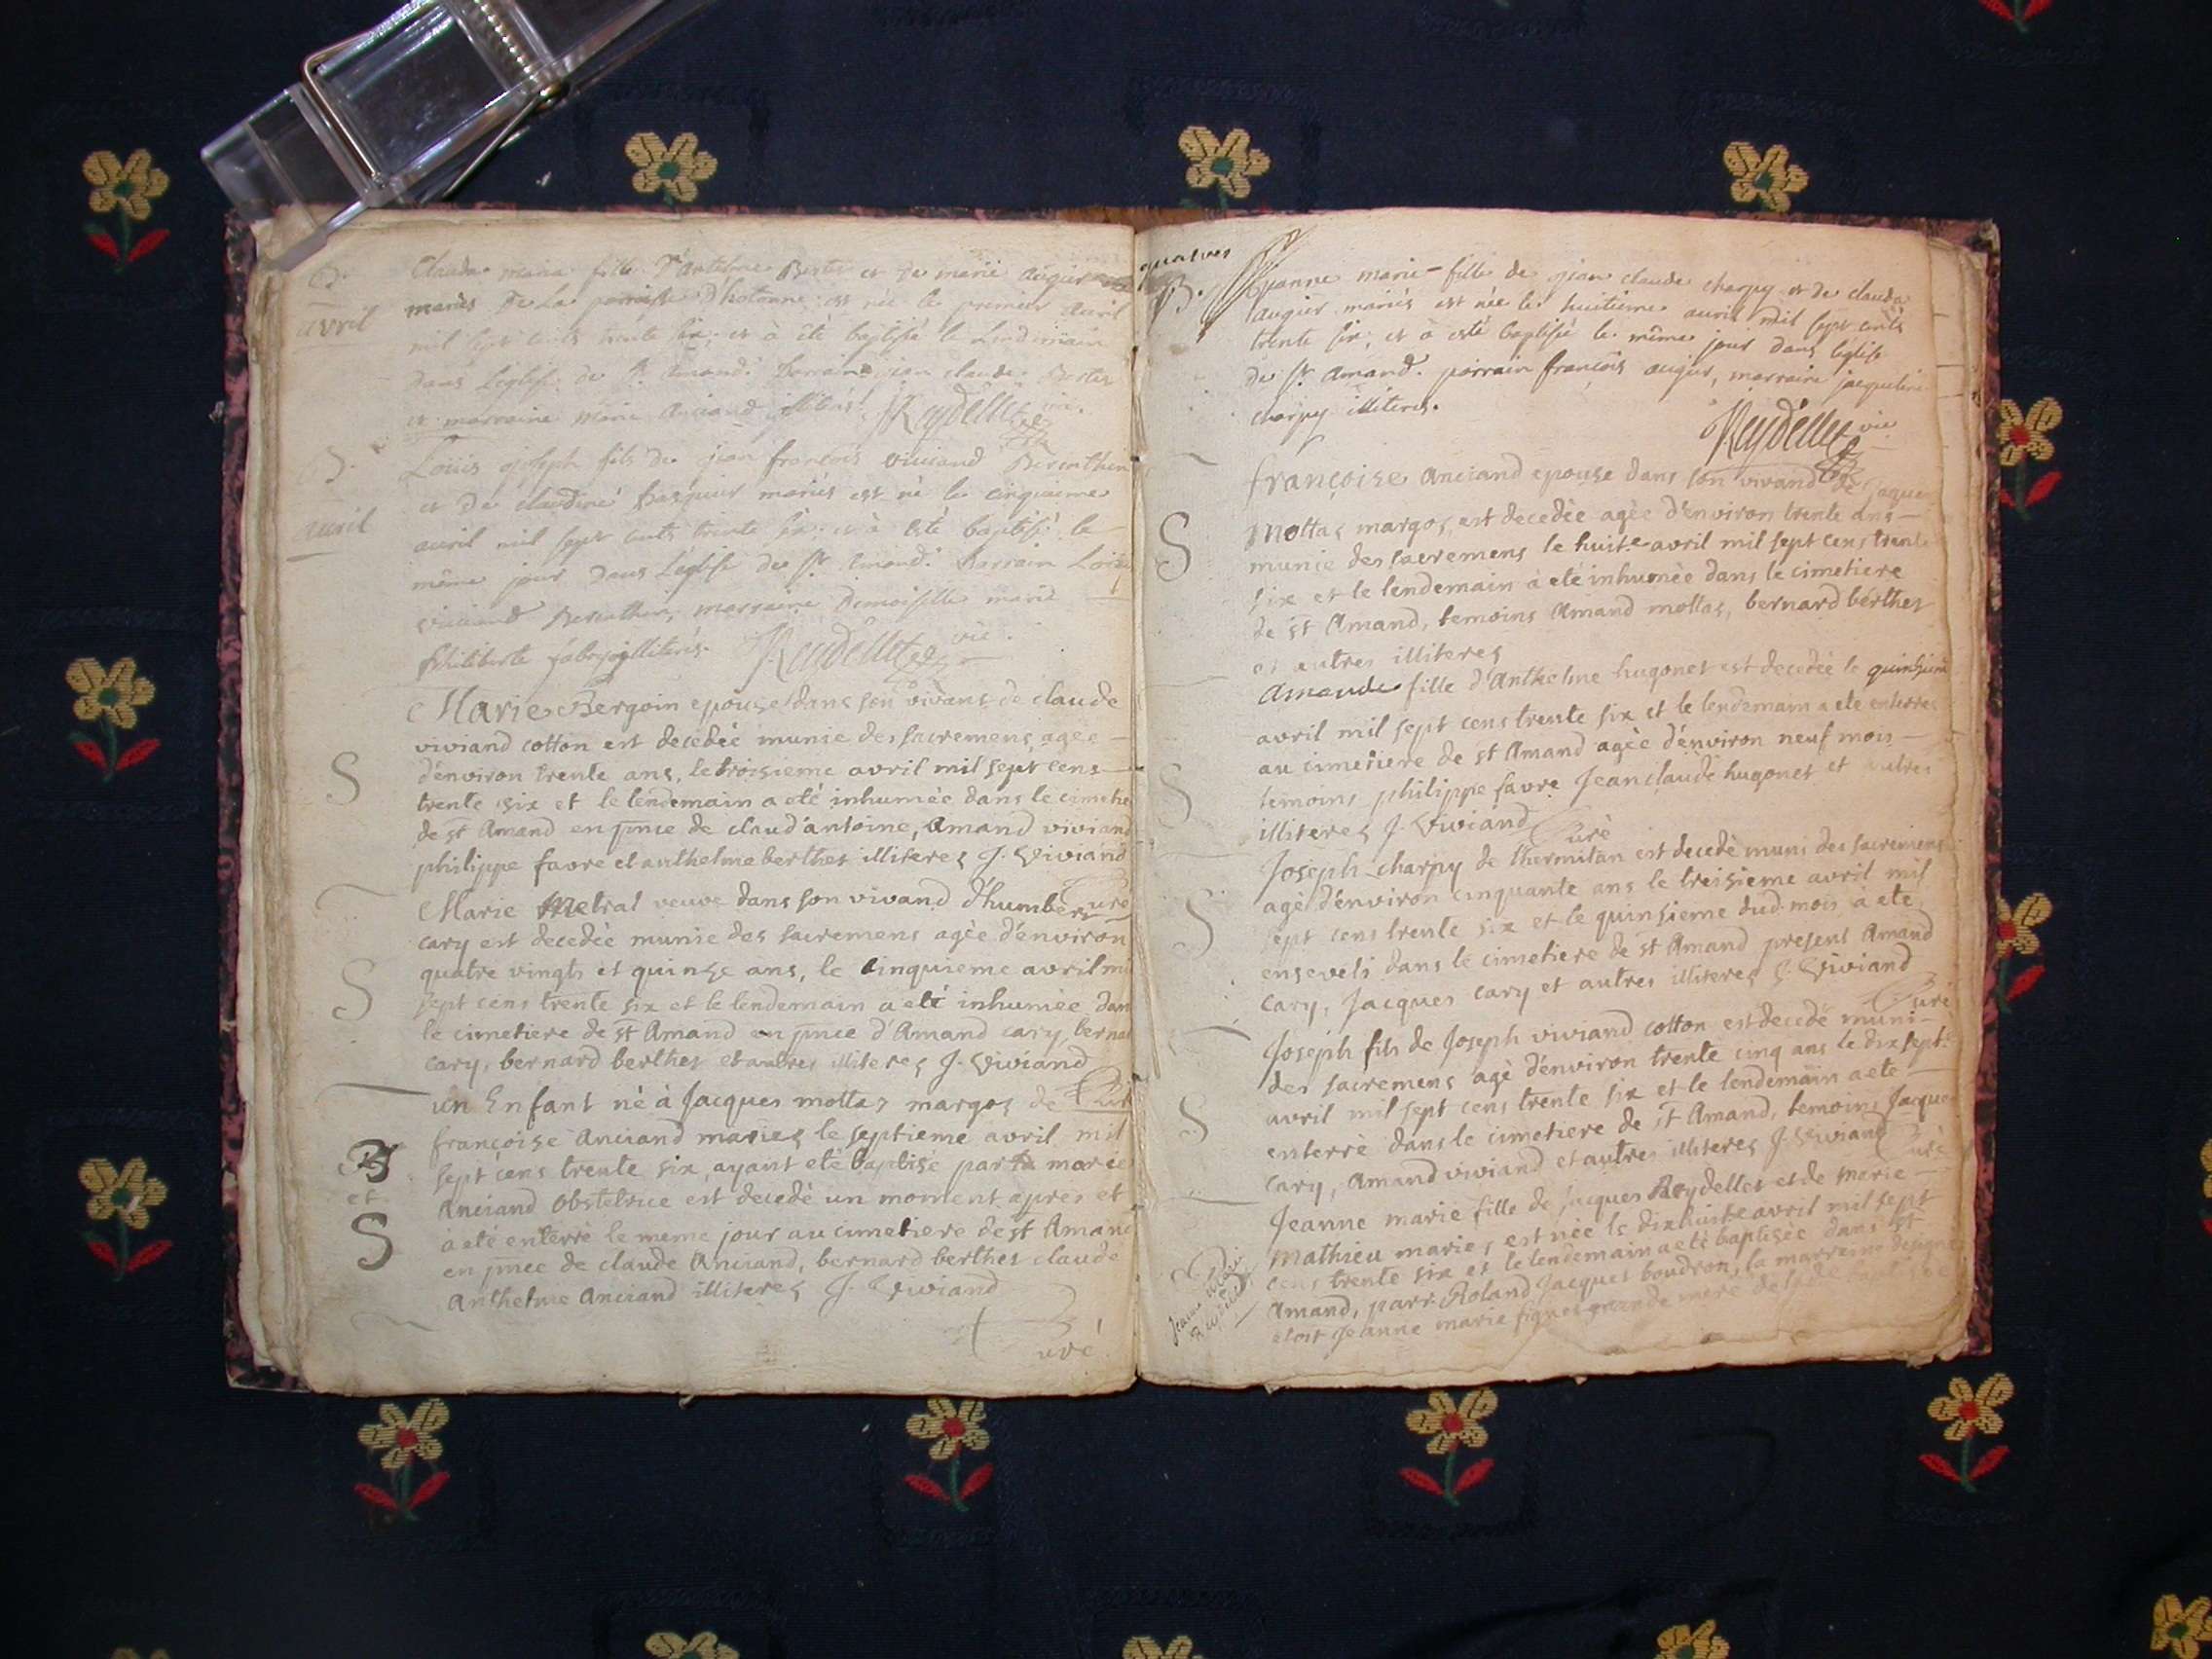 B.
avril
Claude marie fille d'antelme Berter et de marie augier
mariés de la parroisse d'hotonne est née le premier avril
mil sept cents trente six, et à été baptisé le Lendemain
dans L'eglise de St amand. Parrain jean claude Berter
et marraine marie anciand illiterés. Reydellet vic.
B.
avril
Loüis joseph fils de jean francois viviand
et de claudine pasquier mariés est né le cinquieme
avril mil sept cents trente six et à esté baptisé le
même jour dans L'eglise de St amand. Parrain Loüis
viviand marraine Demoiselle marie
philiberte illiterés. Reydellet vic.
Marie Bergoin epouse dans son vivant de claude
viviand cotton est decedèe munie des sacremens, agèe
S
d'environ trente ans, le troisieme avril mil sept cens
trente six et le lendemain a eté inhumèe dans le cimetie
de st Amand en pnce de claud'antoine, Amand viviand
philippe favre et anthelme berthet illiteres J. Viviand
Curé
Marie Metral veuve dans son vivand d'humbert
cary est decedèe munie des sacremens agèe d'environ
S
quatre vingts et quinse ans, le cinquieme avril mi
sept cens trente six et le lendemain a eté inhumèe dan
le cimetiere de st Amand en pnce d'Amand cary berna
cary, bernard berthet et autres illiteres J. Viviand
Curé
un Enfant nè à Jacques mottaz margos de
françoise anciand mariés le septieme avril mil
B
et
S
sept cens trente six, ayant eté baptisé par marie
Anciand Obstetrice est decedé un moment apres et
a eté enterré le meme jour au cimetiere de st Amand
en pnce de claude Anciand, bernard berthet claude
Anthelme Anciand illiteres J. Viviand
Curé
B.
jeanne marie fille de jean claude charpy et de claude
augier mariés est née le huitieme avril mil sept cents
trente six, et à esté baptisée le même jour dans l'eglise
de St amand. parrain francois augier, marraine jaqueline
charpy illiterés.
Reydellet vic
françoise anciand epouse dans son vivand de Jaque
S
Mottas margos, est decedèe agèe d'environ trente ans
munie des sacremens le huite avril mil sept cens trente
six et le lendemain à eté inhumèe dans le cimetiere
de st Amand, temoins Amand mottas, bernard berthet
et autres illiteres
Amaude fille d'Anthelme hugonet est decedèe le quinsieme
avril mil sept cens trente six et le lendemain a ete enterree
S
au cimetiere de st Amand agèe d'environ neuf mois
temoins philippe favre Jean claude hugonet et autres
illiteres J. Viviand Curè
Joseph charpy de lhermitan est decedè muni des sacremens
agè d'environ cinquante ans le treisieme avril mil
S
sept cens trente six et le quinsieme dud. mois à ete
enseveli dans le cimetiere de st Amand present Amand
cary, Jacques cary et autres illiteres J. Viviand
Curè
Joseph fils de Joseph viviand cotton est decedé muni
des sacremens agè d'environ trente cinq ans le dix sept.e
S
avril mil sept cens trente six et le lendemain a ete
enterrè dans le cimetiere de st Amand, temoins Jacque
cary, Amand viviand et autres illiteres J. Viviand Curè
Jeanne marie fille de Jacques Reydellet et de Marie
Mathieu mariés est née le dixhuite avril mil sept
B
Jeanne Marie
Reydellet
cens trente six et le lendemain a eté baptisèe dans st
Amand, parr. Roland Jacques boudron, la marreine
etoit Jeanne marie grande mere de